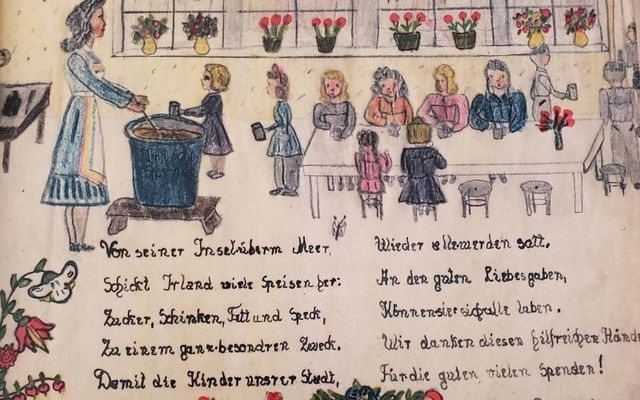 Von seiner Insel überm Meer,
Schickt Irland viele Speisen her:
Zucker, Schinken, Fett und Speck,
Zu einem ganz besondren Zweck.
Damit die Kinder unsrer Stadt,
Wieder alle werden satt.
An den guten Liebesgaben,
Können sie sich alle laben.
Wir danken diesen hilfreichen Hände
Für die guten, vielen Spenden!